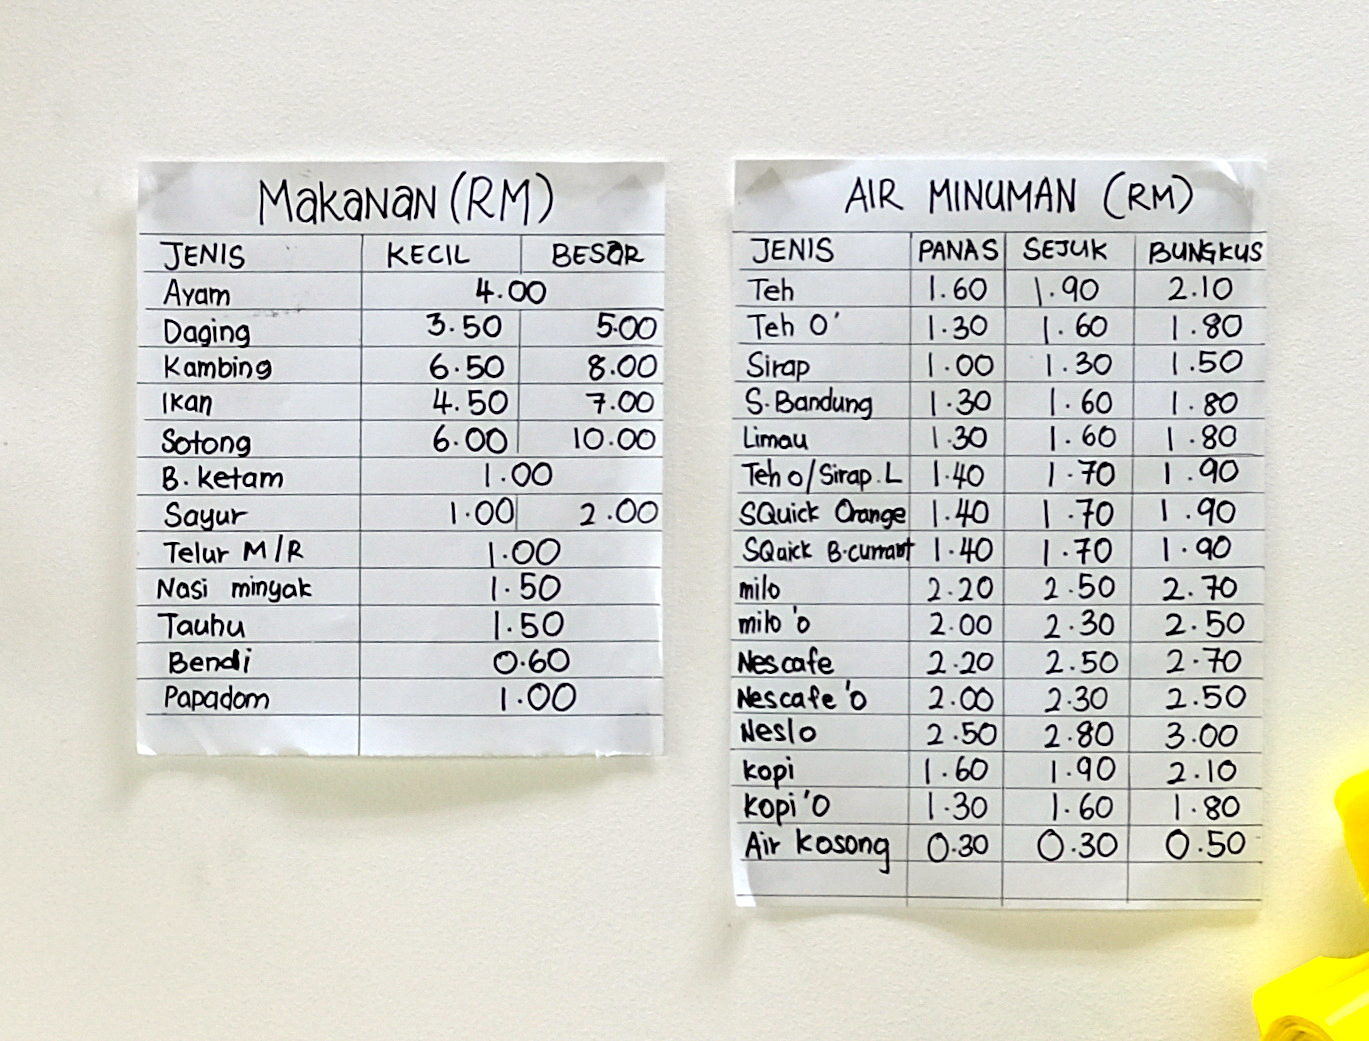 Makanan (RM)
JENIS KECIL BESAR
Ayam 4.00
Daging 3.50 5.00
Kambing 6.50 8.00
Ikan 4.50 7.00
Sotong 6.00 10.00
B. ketam 1.00
Sayur 1.00 2.00
Telur M/R 1.00
Nasi minyak 1.50
Tauhu 1.50
Bendi 0.60
Papadom 1.00
AIR MINUMAN (RM)
JENIS PANAS SEJUK BUNGKUS
Teh 1.60 1.90 2.10
Teh O' 1.30 1.60 1.80
Sirap 1.00 1.30 1.50
S. Bandung 1.30 1.60 1.80
Limau 1.30 1.60 1.80
Teh o/Sirap. L 1.40 1.70 1.90
SQuick Orange 1.40 1.70 1.90
SQuick B.currant 1.40 1.70 1.90
milo 2.20 2.50 2.70
milo 'o 2.00 2.30 2.50
Nescafe 2.20 2.50 2.70
Nescafe 'o 2.00 2.30 2.50
Neslo 2.50 2.80 3.00
kopi 1.60 1.90 2.10
kopi 'O 1.30 1.60 1.80
Air kosong 0.30 0.30 0.50